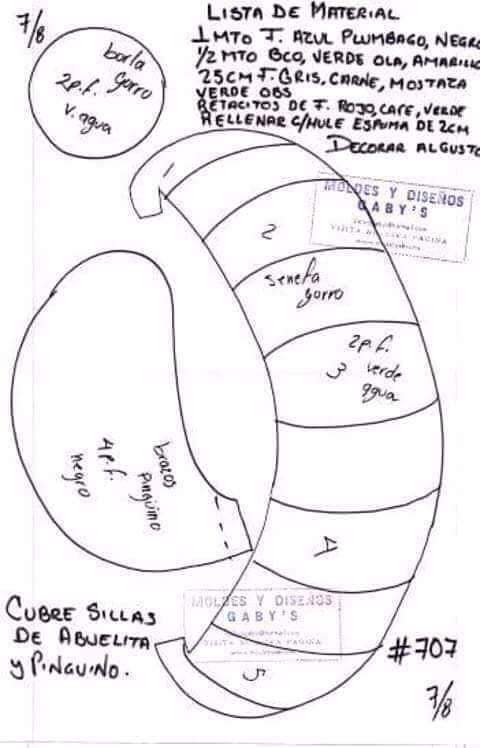 7/8
LISTA DE MATERIAL
1 MTO F. AZUL PLUMBAGO, NEGRO
1/2 MTO BCO, VERDE OLA, AMARILLO
25CM F. GRIS, CARNE, MOSTAZA
VERDE OBS
RETACITOS DE F. ROJO, CAFE, VERDE
RELLENAR C/HULE ESPUMA DE 2CM
DECORAR AL GUSTO
borla
gorro
2p.f.
v. agua
MOLDES Y DISEÑOS
GABY'S
VISITA NUESTRA PAGINA
1
2
senefa
gorro
2p.f.
3 verde
agua
4
5
brazos
pingüino
4p.f.
negro
MOLDES Y DISEÑOS
GABY'S
VISITA NUESTRA PAGINA
CUBRE SILLAS
DE ABUELITA
y PINGUINO.
#707
7/8